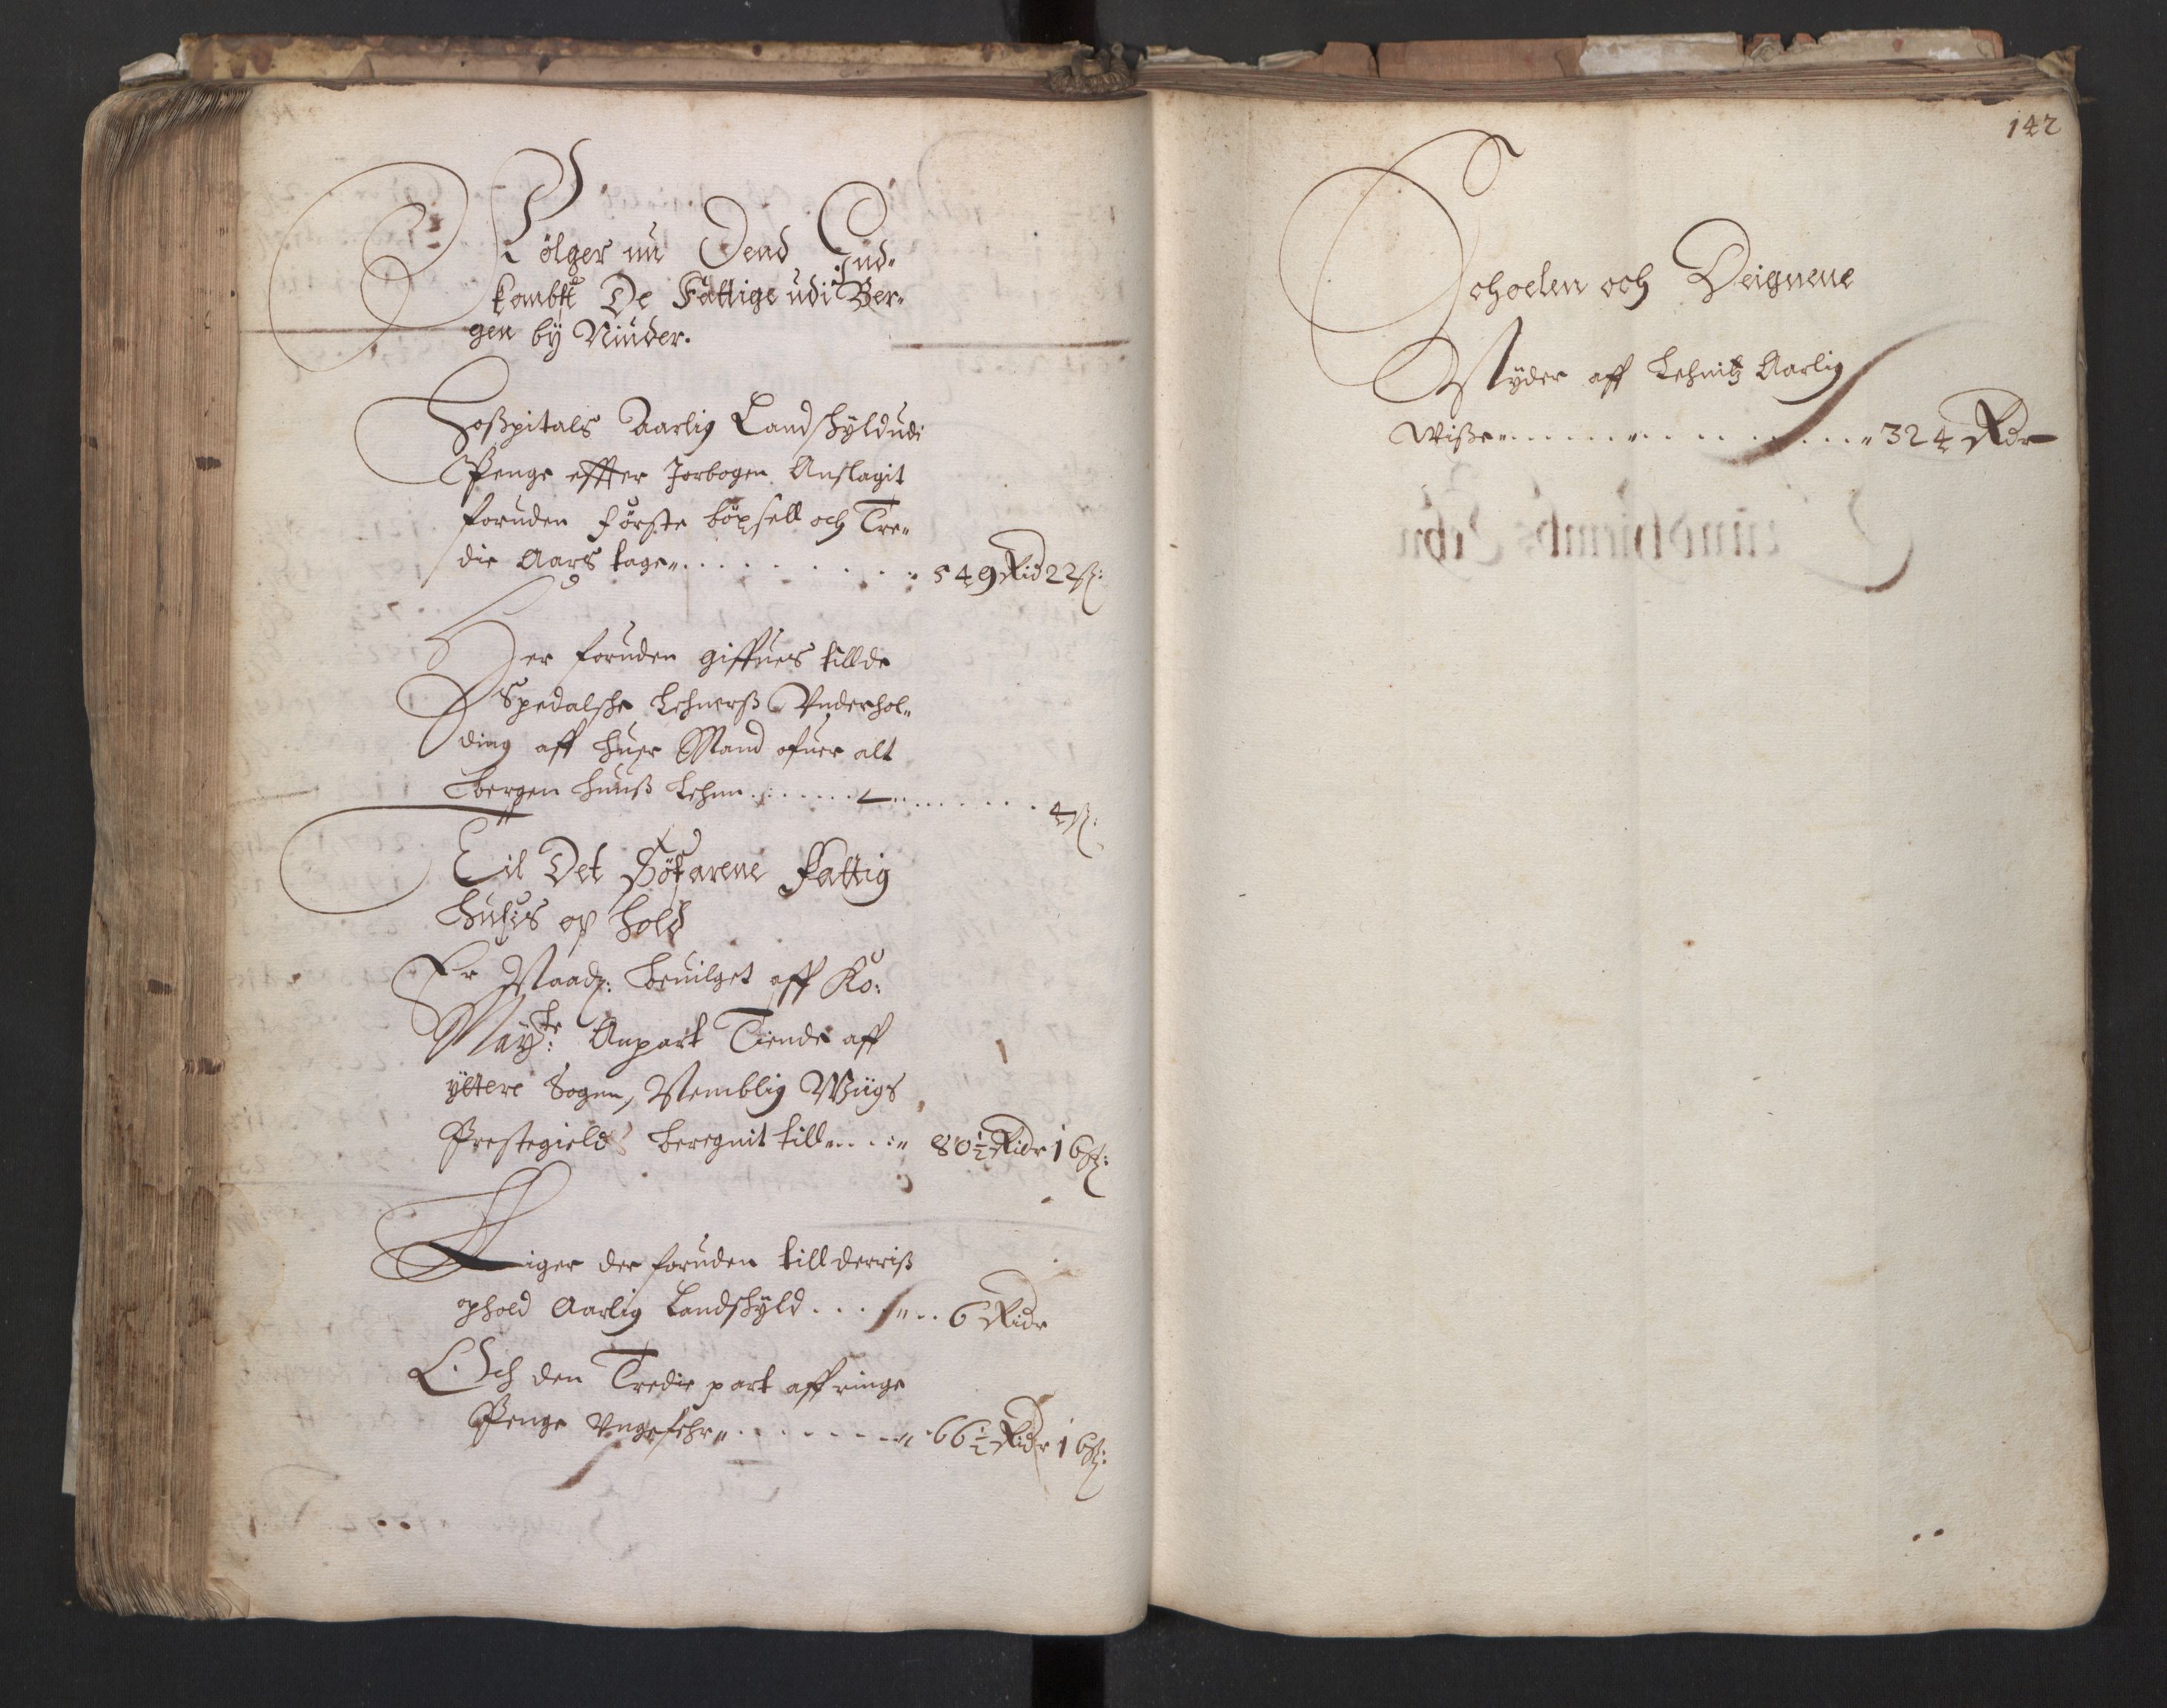 Fölger nu Dend Ind-
kombst De Fattige udi Ber-
gen by Niuder.
Hoßpitals Aarlig Landschyld udi
Penge effter Jorbogen Anslagit
foruden Förste böxsell och Tre-
die Aars tage 549 Rid 22 ß:
Her foruden giffues till de
Spedalsche Lehmerß Underhol-
ding aff huer Mand ofuer alt
Bergen huuß Lehn 4 ß:
Til Det Söfarene Fattig
huusis op hold
Er Naadz: beuilget aff Ko:
Mayte: Anpart Tiende aff
yttere Sogen, Nemblig Wiigs
Prestegields beregnit till 80½ Ridr 16 ß:
Liger der foruden till derriß
ophold Aarlig Landschyld 6 Ridr
Och den Tredie part aff ringe
Penge Ungefehr 66½ Ridr 16 ß:
142
Schoelen och Deignene
Nyder aff Lehnitz Aarlig
Wiße 324 Rdr